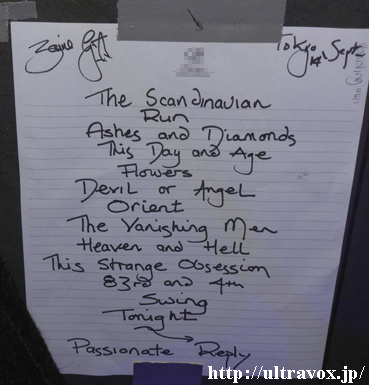 Zaine Griff
Tokyo
14 Sept
The Scandinavian
Run
Ashes and Diamonds
This Day and Age
Flowers
Devil or Angel
Orient
The Vanishing Men
Heaven and Hell
This Strange Obsession
83rd and 4th
Swing
Tonight
Passionate Reply
http://ultravox.jp/